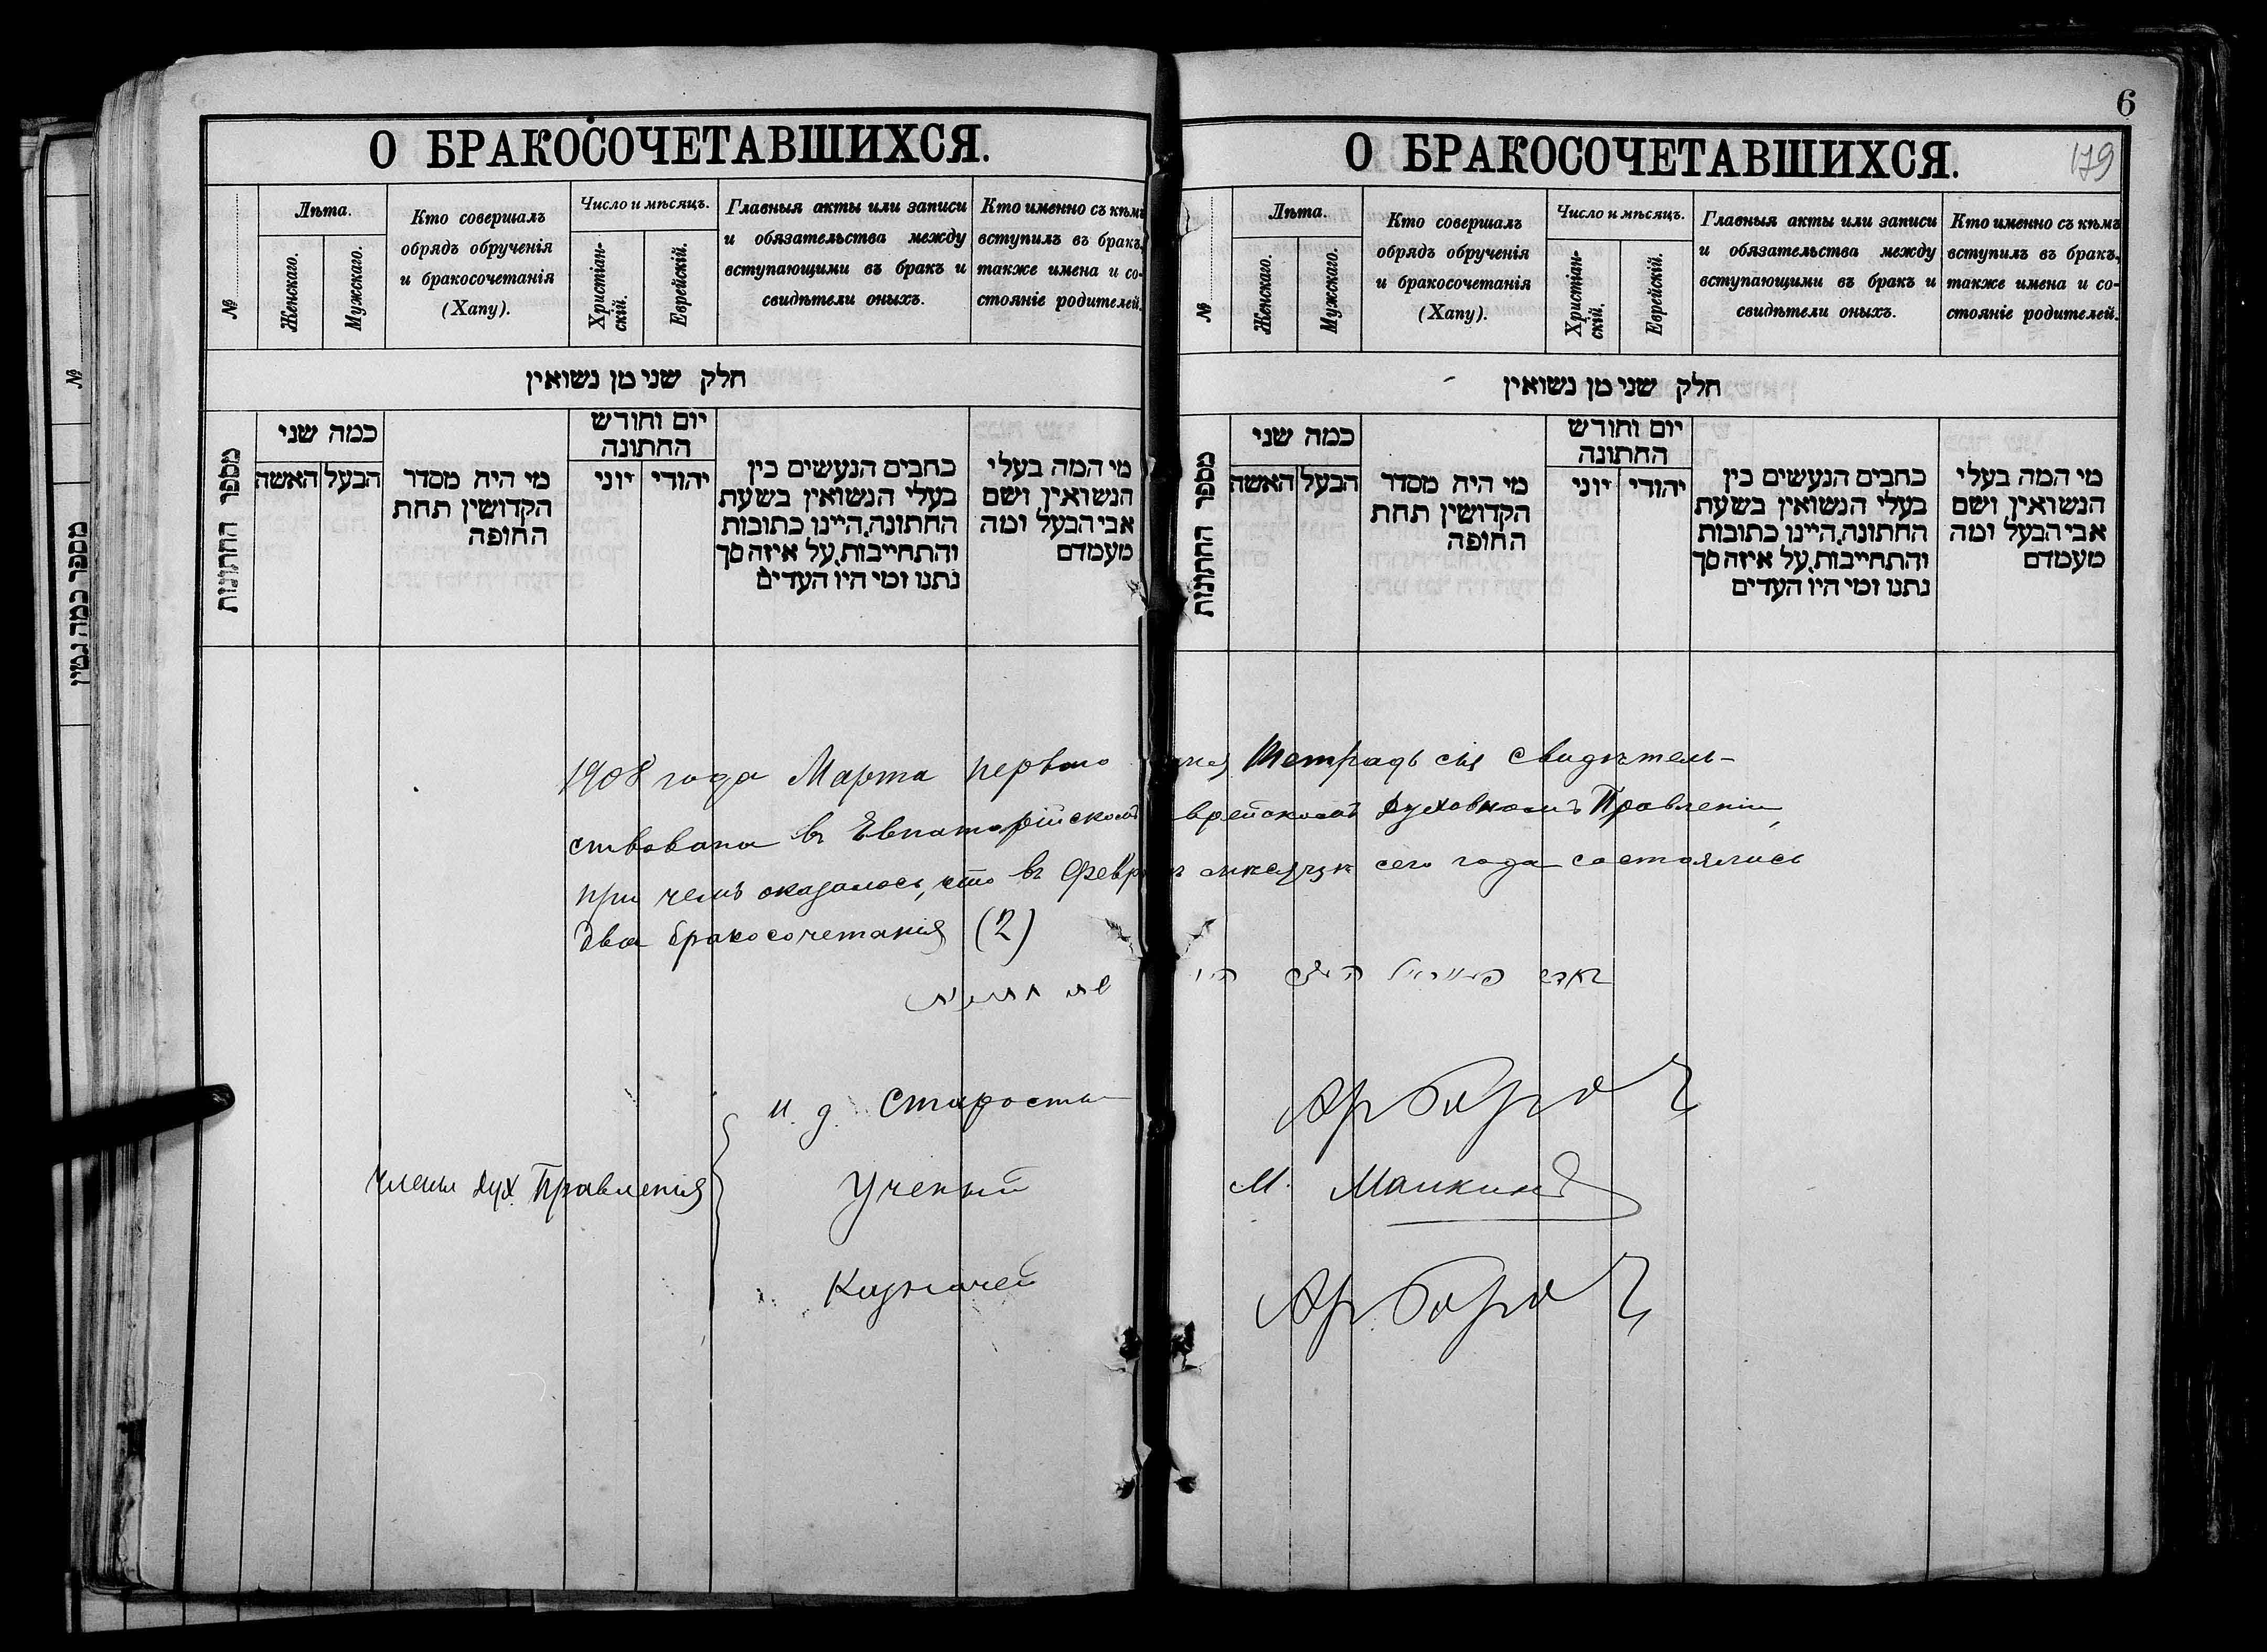 О БРАКОСОЧЕТАВШИХСЯ.
№
Лѣта.
Женскаго.
Мужскаго.
Кто совершалъ
обрядъ обрученія
и бракосочетанія
(Хапу).
Число и мѣсяцъ.
Христіан-
скій.
Еврейскій.
Главныя акты или записи
и обязательства между
вступающими въ бракъ и
свидѣтели оныхъ.
Кто именно съ кѣмъ
вступилъ въ бракъ,
также имена и со-
стояніе родителей.
חלק שני מן נשואין
מספר החתונות
כמה שני
הבעל
האשה
מי היה מסדר
הקדושין תחת
החופה
יום וחודש
החתונה
יהודי
יוני
כתבים הנעשים בין
בעלי הנשואין בשעת
החתונה, היינו כתובות
והתחייבות, על איזה סך
נתנו ומי היו העדים
מי המה בעלי
הנשואין, ושם
אבי הבעל ומה
מעמדם
6
О БРАКОСОЧЕТАВШИХСЯ.
179
№
Лѣта.
Женскаго.
Мужскаго.
Кто совершалъ
обрядъ обрученія
и бракосочетанія
(Хапу).
Число и мѣсяцъ.
Христіан-
скій.
Еврейскій.
Главныя акты или записи
и обязательства между
вступающими въ бракъ и
свидѣтели оныхъ.
Кто именно съ кѣмъ
вступилъ въ бракъ,
также имена и со-
стояніе родителей.
חלק שני מן נשואין
מספר החתונות
כמה שני
הבעל
האשה
מי היה מסדר
הקדושין תחת
החופה
יום וחודש
החתונה
יהודי
יוני
כתבים הנעשים בין
בעלי הנשואין בשעת
החתונה, היינו כתובות
והתחייבות, על איזה סך
נתנו ומי היו העדים
מי המה בעלי
הנשואין, ושם
אבי הבעל ומה
מעמדם
1908 года Марта перваго Тетрадь сія свидѣтель-
ствована въ Евпаторійскомъ Еврейскомъ Духовномъ Правленіи,
при чемъ оказалось, что въ Февр мѣсяцѣ сего года состоялись
два бракосочетанія (2)
И. д. Старосты
Члены Дух. Правленія
Ученый М. Манкинъ
Казначей
№
מספר כמה גטין